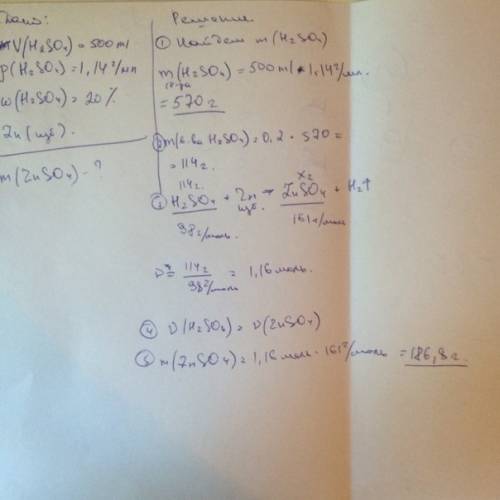 Дано:
V(H₂SO₄) = 500 ml
ρ(H₂SO₄) = 1,14 г/мл
ω(H₂SO₄) = 20%
Zn (изб).
m(ZnSO₄) - ?
Решение
① Найдем m(H₂SO₄)
m(H₂SO₄) = 500 ml · 1,14 г/мл.
р-ра
= 570 г
② m(в-ва H₂SO₄) = 0,2 · 570 =
= 114 г.
114 г. X г
③ H₂SO₄ + Zn → ZnSO₄ + H₂↑
изб.
98 г/моль. 161 г/моль
ν = 114 г / 98 г/моль = 1,16 моль.
④ ν(H₂SO₄) = ν(ZnSO₄)
⑤ m(ZnSO₄) = 1,16 моль · 161 г/моль = 186,8 г.